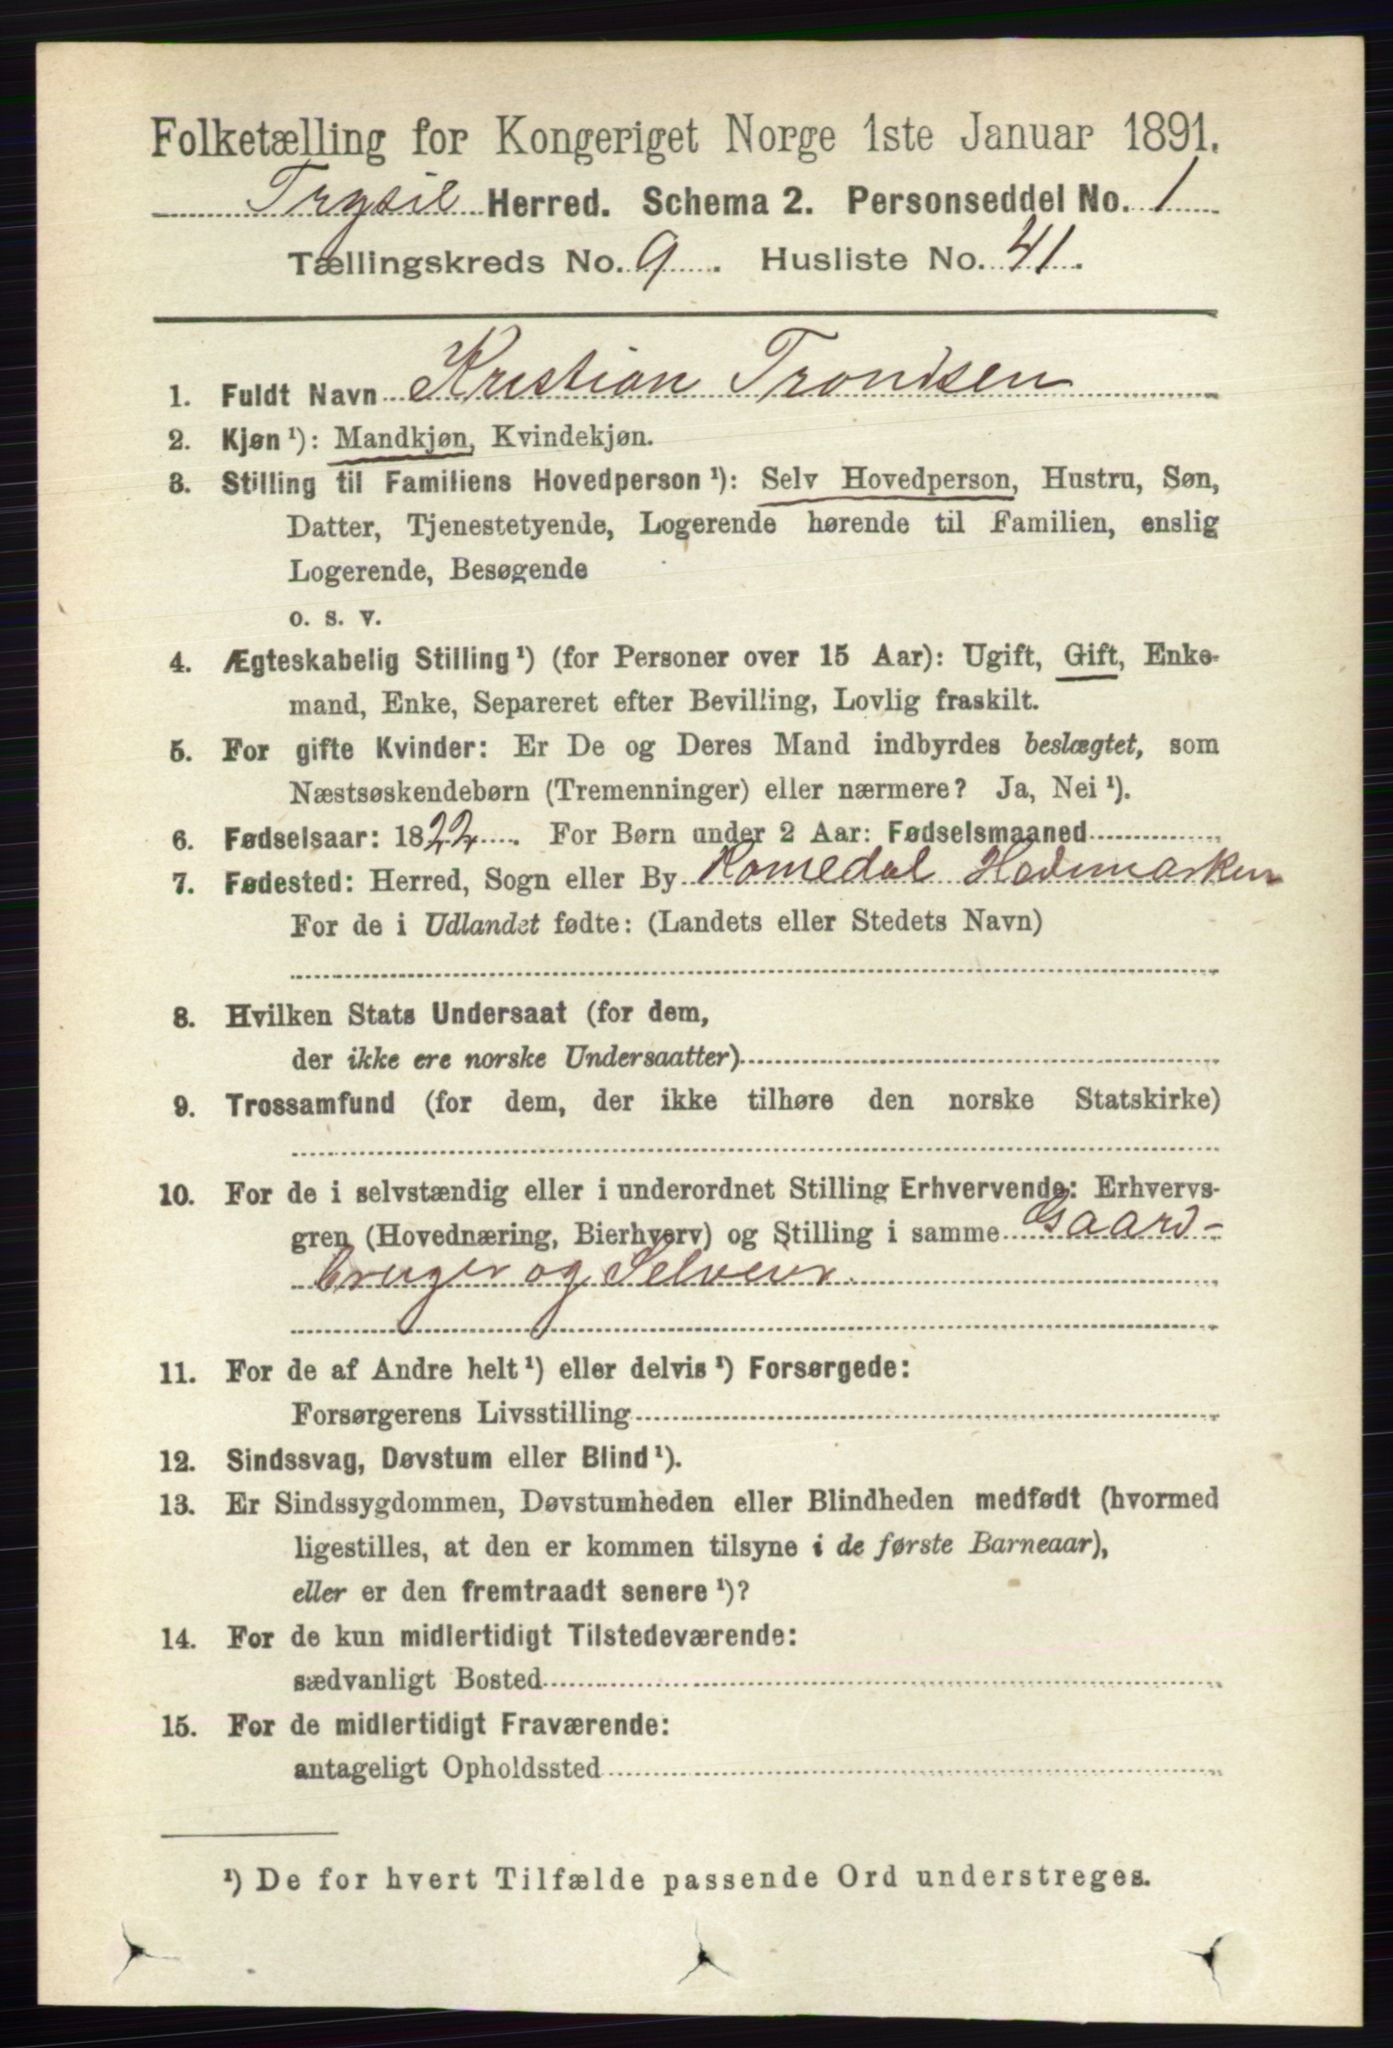 Folketælling for Kongeriget Norge 1ste Januar 1891.
Trysil Herred. Schema 2. Personseddel No. 1
Tællingskreds No. 9. Husliste No. 41.
1. Fuldt Navn Kristian Trondsen
2. Kjøn ¹): Mandkjøn, Kvindekjøn.
3. Stilling til Familiens Hovedperson ¹): Selv Hovedperson, Hustru, Søn,
Datter, Tjenestetyende, Logerende hørende til Familien, enslig
Logerende, Besøgende
o. s. v.
4. Ægteskabelig Stilling ¹) (for Personer over 15 Aar): Ugift, Gift, Enke-
mand, Enke, Separeret efter Bevilling, Lovlig fraskilt.
5. For gifte Kvinder: Er De og Deres Mand indbyrdes beslægtet, som
Næstsøskendebørn (Tremenninger) eller nærmere? Ja, Nei ¹).
6. Fødselsaar: 1822. For Børn under 2 Aar: Fødselsmaaned
7. Fødested: Herred, Sogn eller By Romedal Hedemarken
For de i Udlandet fødte: (Landets eller Stedets Navn)
8. Hvilken Stats Undersaat (for dem,
der ikke ere norske Undersaatter)
9. Trossamfund (for dem, der ikke tilhøre den norske Statskirke)
10. For de i selvstændig eller i underordnet Stilling Erhvervende: Erhvervs-
gren (Hovednæring, Bierhverv) og Stilling i samme Gaard-
bruger og Selveier.
11. For de af Andre helt ¹) eller delvis ¹) Forsørgede:
Forsørgerens Livsstilling
12. Sindssvag, Døvstum eller Blind ¹).
13. Er Sindssygdommen, Døvstumheden eller Blindheden medfødt (hvormed
ligestilles, at den er kommen tilsyne i de første Barneaar),
eller er den fremtraadt senere ¹)?
14. For de kun midlertidigt Tilstedeværende:
sædvanligt Bosted
15. For de midlertidigt Fraværende:
antageligt Opholdssted
¹) De for hvert Tilfælde passende Ord understreges.